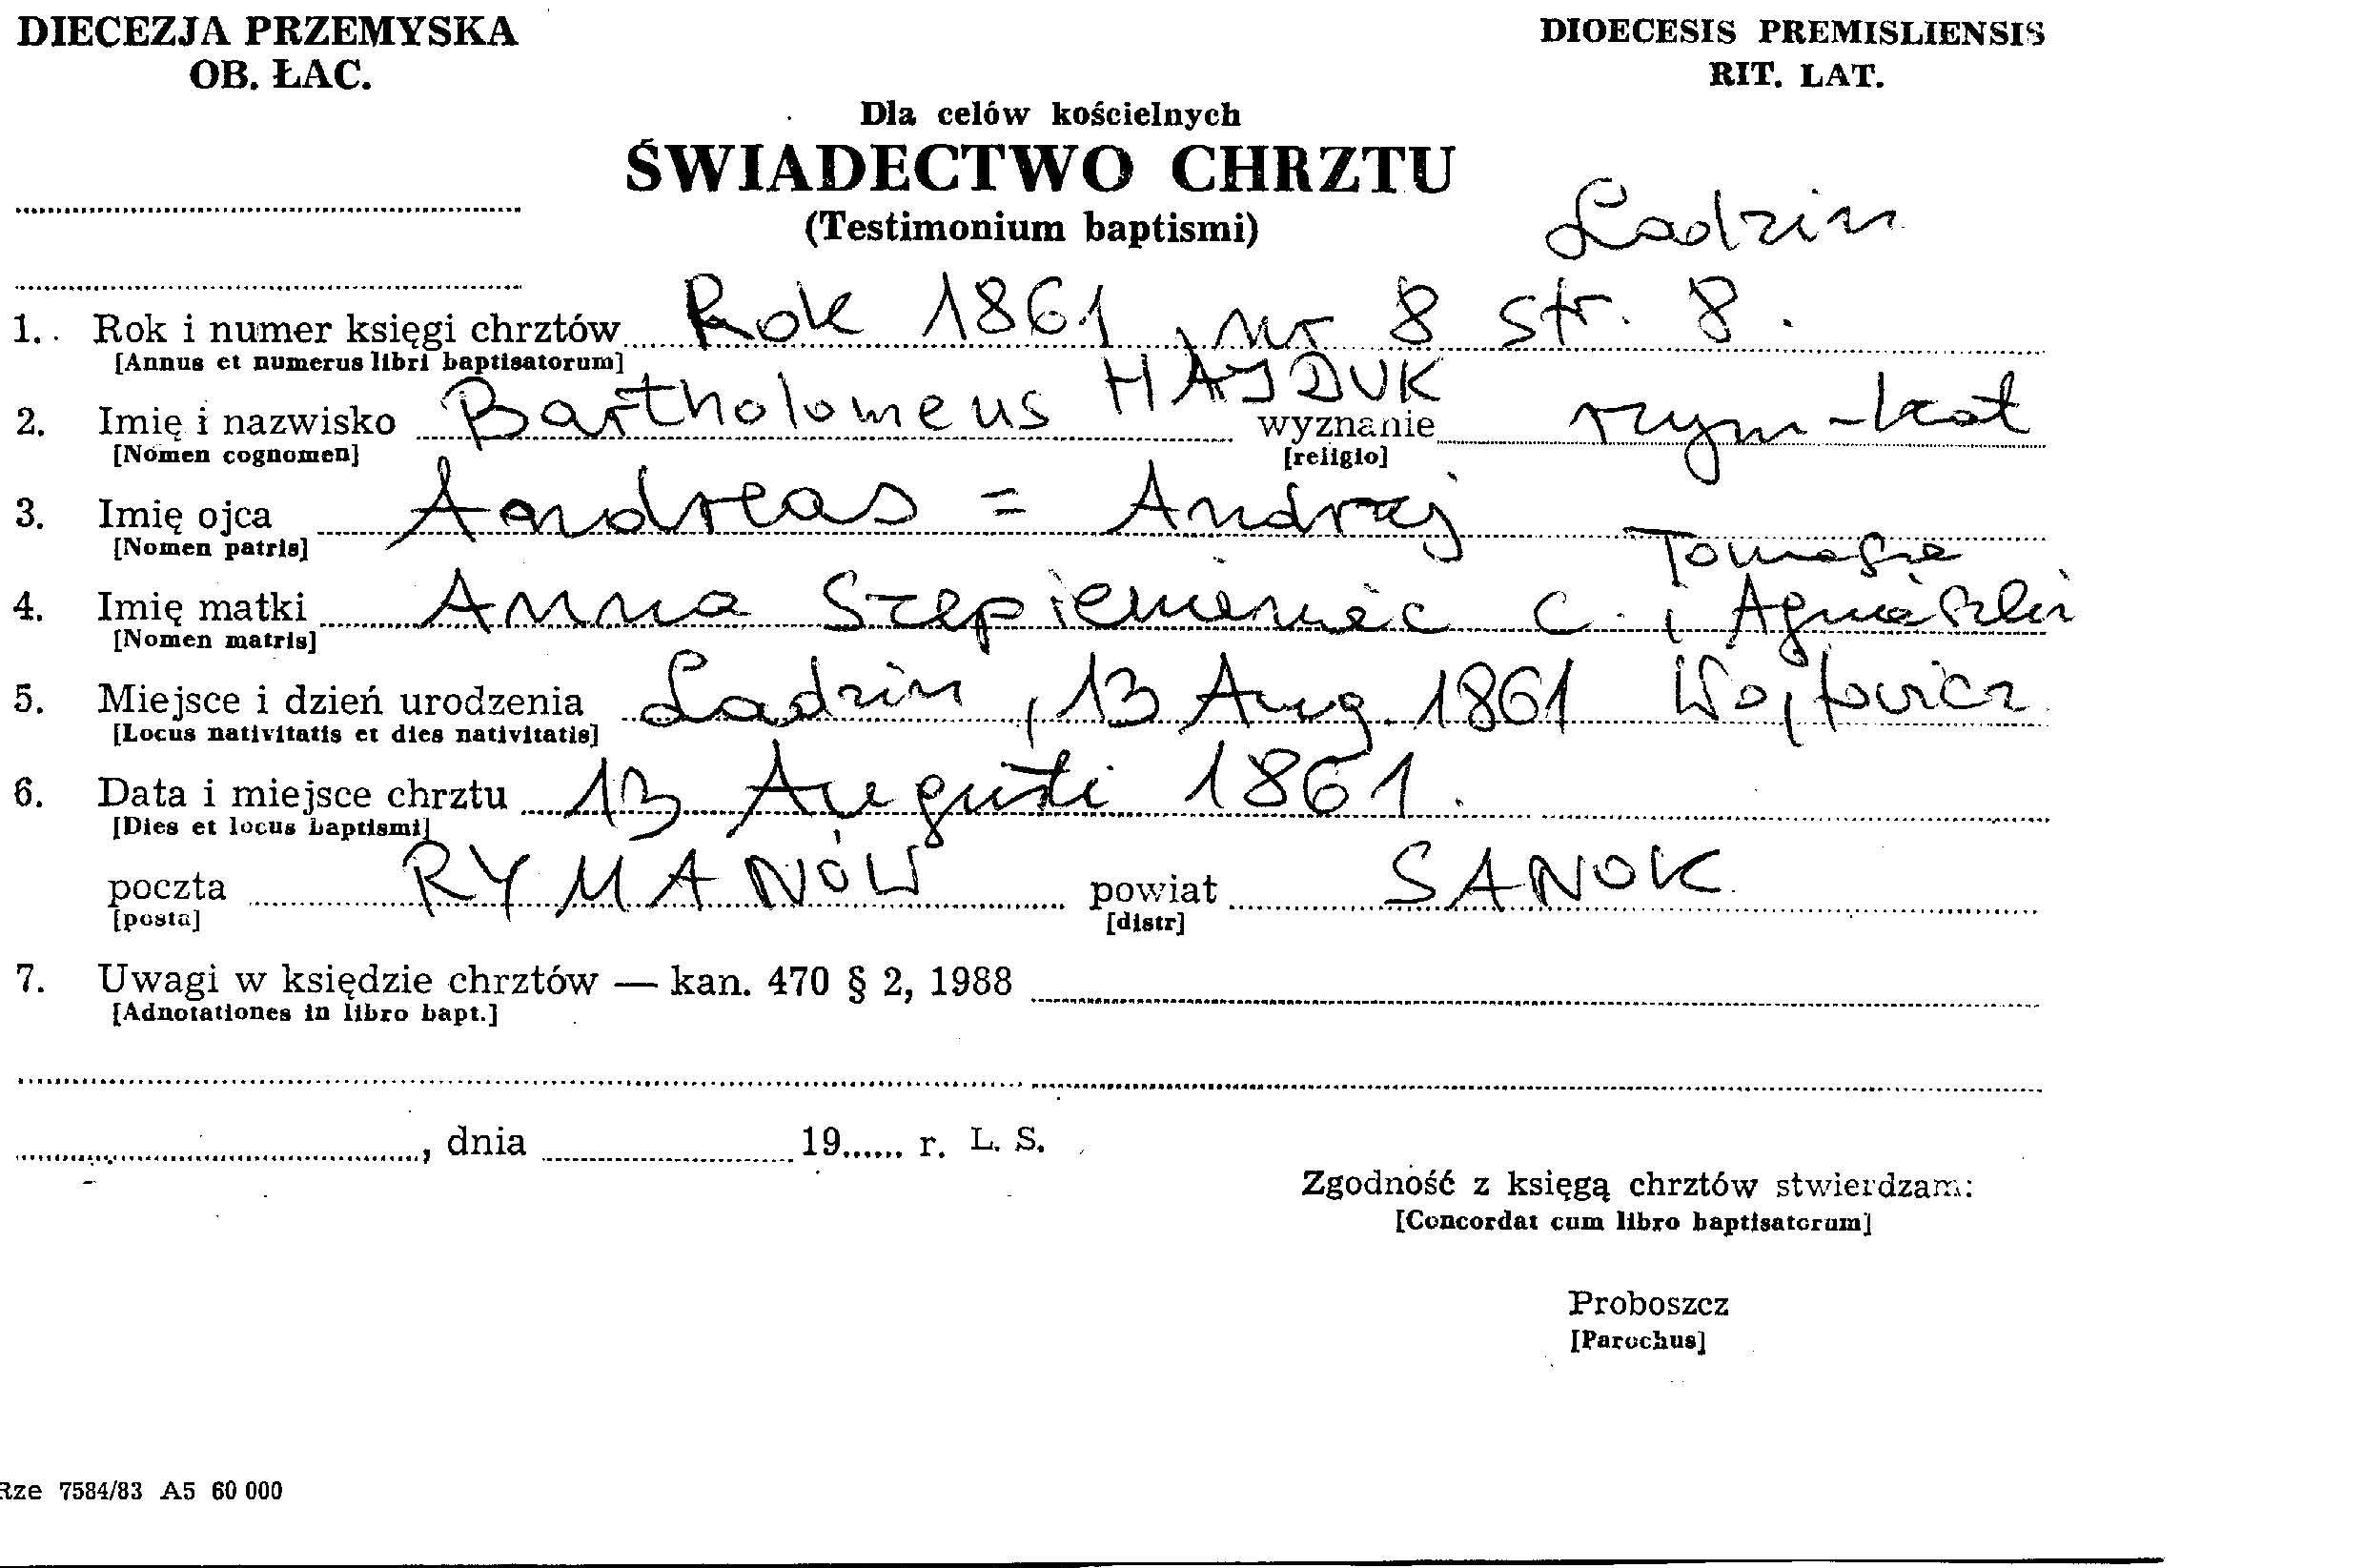 DIECEZJA PRZEMYSKA
OB. ŁAC.
DIOECESIS PREMISLIENSIS
RIT. LAT.
Dla celów kościelnych
ŚWIADECTWO CHRZTU
(Testimonium baptismi)
Ladzin
1. Rok i numer księgi chrztów Rok 1861, Nr 8 str. 8.
[Annus et numerus libri baptisatorum]
2. Imię i nazwisko Bartholomeus HAJDUK wyznanie rzym-kat
[Nomen cognomen] [religio]
3. Imię ojca Andreas = Andrzej
[Nomen patris]
Tomasza
4. Imię matki Anna Szepieniec c. i Agnieszki
[Nomen matris]
5. Miejsce i dzień urodzenia Ladzin, 13 Aug. 1861 Wojtowicz
[Locus nativitatis et dies nativitatis]
6. Data i miejsce chrztu 13 Augusti 1861.
[Dies et locus baptismi]
poczta RYMANÓW powiat SANOK
[posta] [distr]
7. Uwagi w księdzie chrztów — kan. 470 § 2, 1988
[Adnotationes in libro bapt.]
, dnia 19...... r. L. S.
Zgodność z księgą chrztów stwierdzam:
[Concordat cum libro baptisatorum]
Proboszcz
[Parochus]
Rze 7584/83 A5 60 000